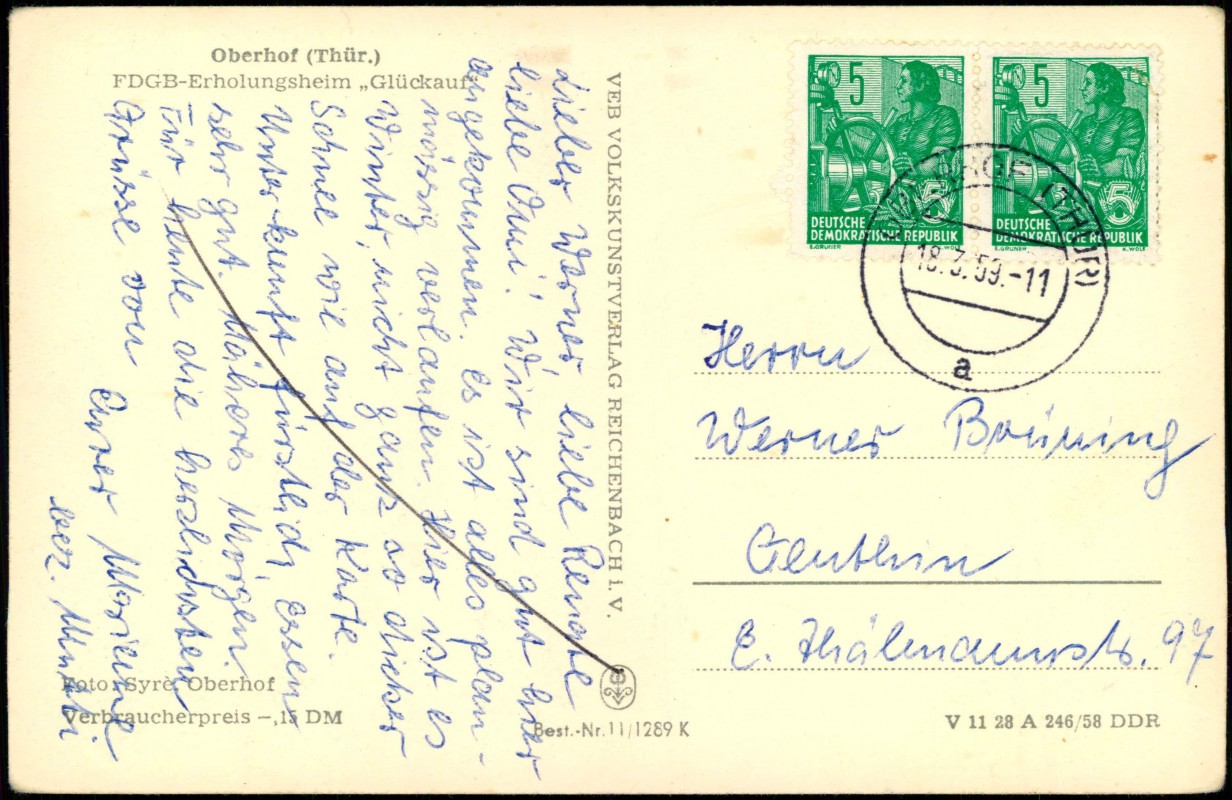 Oberhof (Thür.)
FDGB-Erholungsheim „Glückauf“
Lieber Werner, liebe Renate
liebe Omi! Wir sind gut hier
angekommen. es ist alles plan-
mässig verlaufen. Hier ist es
Winter, nicht ganz so dicker
Schnee wie auf der Karte.
Unterkunft fürstlich, essen
sehr gut. Näheres Morgen.
Für heute die herzlichsten
Grüsse von
Eurer
bez. Mutti.
Foto: Syrè, Oberhof
Verbraucherpreis –,15 DM
VEB VOLKSKUNSTVERLAG REICHENBACH i. V.
Best.-Nr. 11/1289 K
5
DEUTSCHE
DEMOKRATISCHE REPUBLIK
E.GRUNER
5
5
DEUTSCHE
DEMOKRATISCHE REPUBLIK
E.GRUNER K.WOLF
5
(THÜR)
18.3.59.-11
a
Herrn
Werner Brüning
Genthin
E. Thälmannstr. 97
V 11 28 A 246/58 DDR